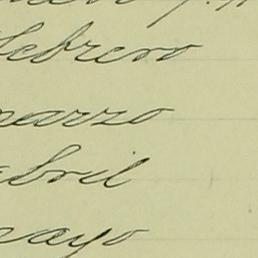 Febrero
marzo
abril
mayo